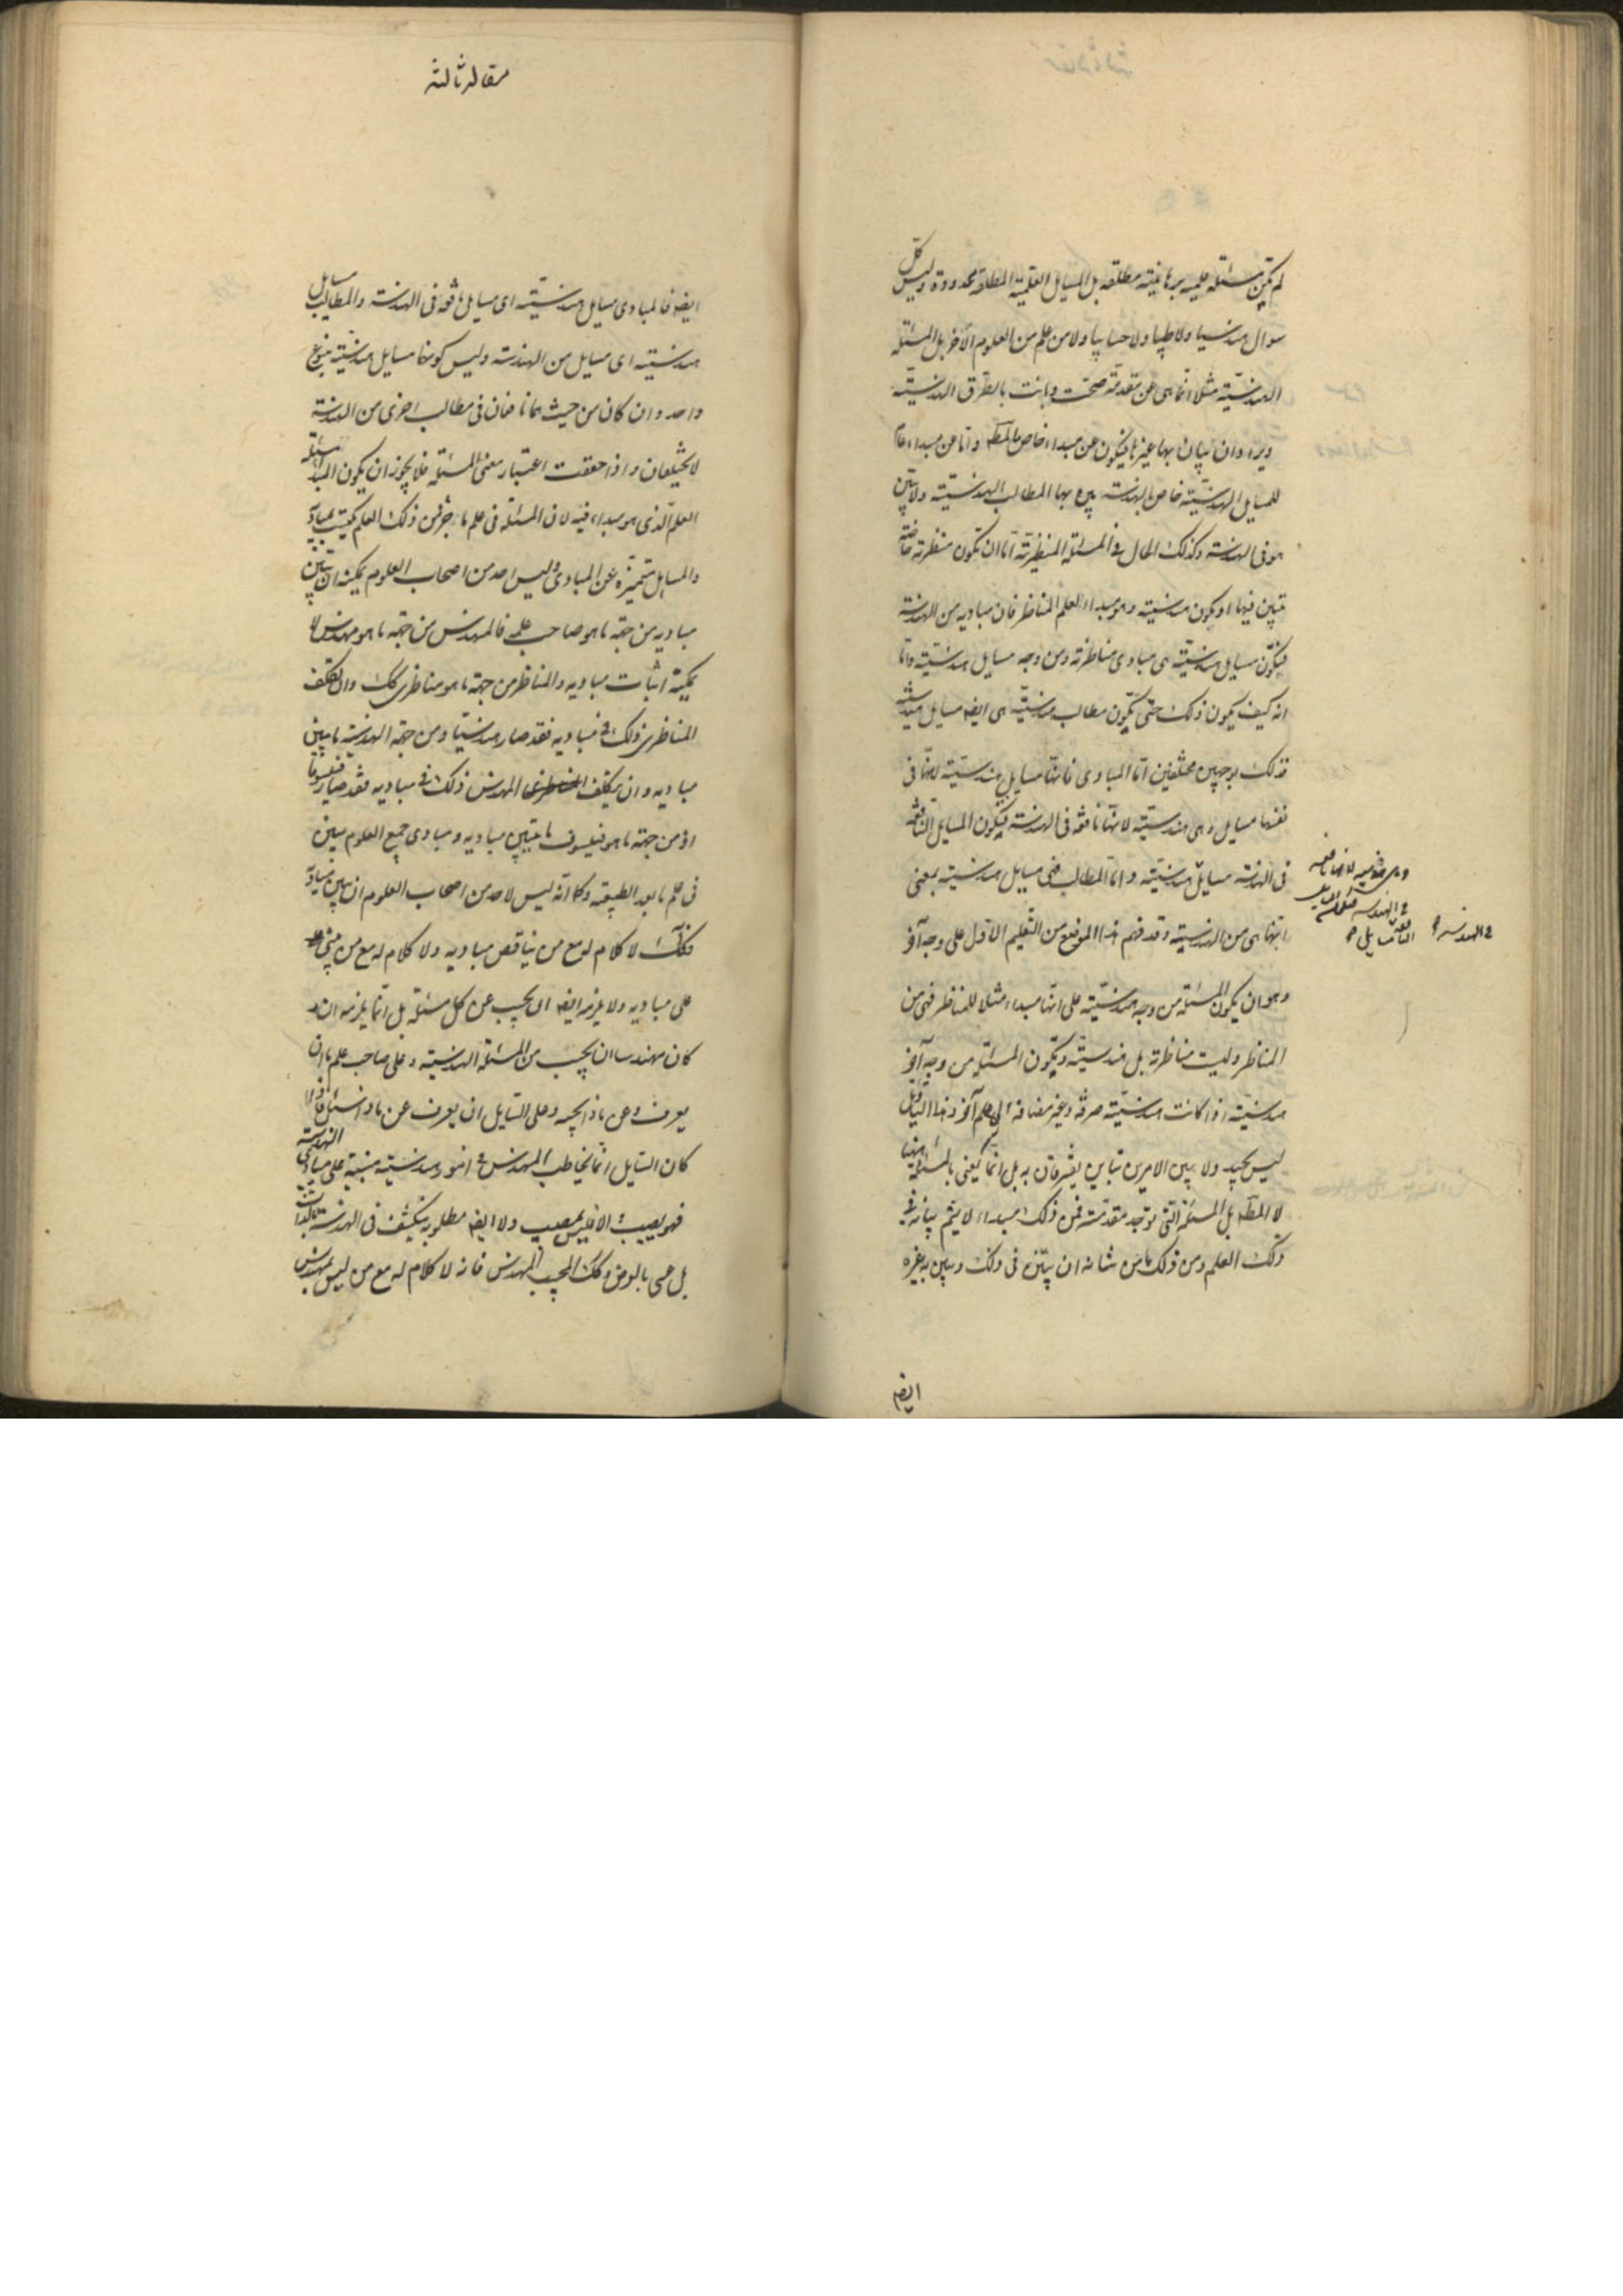 لم تكن مسئلة علمية برهانية مطلقة بل المسايل العلمية المطلقة محدودة وليس كل
سوال هندسيا ولا طبيا ولا حسابيا ولا من علم من العلوم الآخر بل المسئلة
الهندسية مثلا انما هى عن مقدمة صحت وبانت بالطرق الهندسية
ويراد ان يبان بها غيرها فيكون عن مبداء خاص بالمط واما عن مبداء عام
للمسايل الهندسية خاص بالهندسة يبين بها المطالب الهندسية ولا يبين
هو فى الهندسة وكذلك الحال فى المسئلة المنظرية اما ان تكون منظرية خاصة
تبين فيها او يكون هندسية وهو مبداء لعلم المناظر فان مباديه من الهندسة
فيكون مسايل هندسية هى مبادى مناظرية ومن وجه مسايل هندسية واما
انه كيف يكون ذلك حتى يكون مطالب هندسية هى ايضه مسايل هندسية
فذلك بوجهين مختلفين اما المبادى فانها مسايل هندسية لانها فى
نفسها مسايل وهى هندسية لانها نافعة فى الهندسة فيكون المسايل النافعة
فى الهندسة مسايل هندسية واما المطالب فهى مسايل هندسية بمعنى
انها هى من الهندسية وقد فهم هذا الموضع من التعليم الاول على وجه آخر
وهو ان يكون المسئلة من وجه هندسية على انها مبداء مثلا للمناظر فهى من
المناظر وليست مناظرية بل هندسية ويكون المسئلة من وجه آخر
هندسية اذا كانت هندسية صرفة وغير مضافة الى علم آخر وهذا التاويل
ليس بجيد ولا بين الامرين تباين يفترقان به بل انما يعنى بالمسئلة ههنا
لا المطه بل المسئلة التى توجد مقدمة فمن ذلك مبداء لا يتم بيانه فى
ذلك العلم ومن ذلك ما من شانه ان يتبين فى ذلك ويبين به غيره
وهى هندسية لانها نافعة
فى الهندسة
النافعة
فى الهندسة
ايضه
مقاله ثالثة
ايضه فالمبادى مسايل هندسية اى مسايل نافعة فى الهندسة والمطالب مسايل
هندسية اى مسايل من الهندسة وليس كونها مسايل هندسية بنوع
واحد وان كان من حيث هما نافعان فى مطالب اخرى من الهندسة
لا يختلفان واذا حققت اعتبار معنى المسئلة فلا يجوز ان يكون المبداء مسئلة
العلم الذى هو مبداء فيه لان المسئلة فى علم ما جزء من ذلك العلم يكتسب بمباديه
والمسايل متميزة عن المبادى وليس احد من اصحاب العلوم يمكنه ان يبين
مباديه من جهة ما هو صاحب علمه فالمهندس من جهة ما هو مهندس لا
يمكنه اثبات مباديه والمناظر من جهة ما هو مناظرى كك وان تكلف
المناظرى ذلك فى مباديه فقد صار هندسيا ومن جهة الهندسية ما يبين
مباديه وان تكلف المهندس ذلك فى مباديه فقد صار فيلسوفا
اذ من جهة ما هو فيلسوف ما يبين مباديه ومبادى جميع العلوم يبين
فى علم ما بعد الطبيعة وكما انه ليس لاحد من اصحاب العلوم ان يبين مباديه
فكذلك لا كلام له مع من يناقض مباديه ولا كلام له مع من لا يبنى
على مباديه ولا يلزمه ايضه ان يجيب عن كل مسئلة بل انما يلزمه ان
كان مهندسا ان يجيب من المسئلة الهندسية وعلى صاحب علم ما ان
يعرف عن ماذا يجيب وعلى السايل ان يعرف عن ماذا يسئل فاذا
كان السايل انما يخاطب المهندس فى امور هندسية مبنية على مبادى الهندسة
فهو مصيب والا فليس بمصيب ولا ايضه مطلوبه ينكشف فى الهندسة بالذات
بل عسى بالعرض وكك المجيب المهندس فانه لا كلام له مع من ليس بمهندس